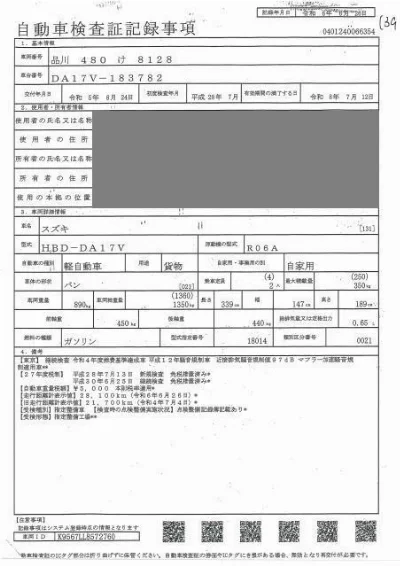 自動車検査証記録事項
記録年月日 令和 6年 6月26日
(39
0401240066354
1. 基本情報
車両番号 品川 480 け 8128
車台番号 DA17V-183782
交付年月日 令和 6年 6月 24日 初度検査年月 平成 28年 7月 有効期間の満了する日 令和 8年 7月 12日
2. 使用者・所有者情報
使用者の氏名又は名称
使用者の住所
所有者の氏名又は名称
所有者の住所
使用の本拠の位置
3. 車両詳細情報
車名 スズキ [131]
型式 HBD-DA17V 原動機の型式 R06A
自動車の種別 軽自動車 用途 貨物 自家用・事業用の別 自家用
車体の形状 バン [021] 乗車定員 (4) 2人 最大積載量 (250) 350kg
車両重量 890kg 車両総重量 (1360) 1350kg 長さ 339cm 幅 147cm 高さ 189cm
前前軸重 450kg 後後軸重 440kg 総排気量又は定格出力 0.65L
燃料の種類 ガソリン 型式指定番号 18014 類別区分番号 0021
4. 備考
【東京】 継続検査 令和4年度燃費基準達成車 平成12年騒音規制車 近接排気騒音規制値97dB マフラー加速騒音規制適用車**
【27年度税制】 平成28年7月13日 新規検査 免税措置済み*
平成30年6月25日 継続検査 免税措置済み*
【自動車重量税額】 ¥5,000 本則税率適用*
【走行距離計表示値】 28,100km (令和6年6月26日)*
【旧走行距離計表示値】 21,700km (令和4年7月4日)*
【受検種別】指定整備車 【検査時の点検整備実施状況】点検整備記録簿記載あり*
【受検形態】指定工場**
[注意事項]
記録事項はシステム登録時点の情報となります
車両ID K9567LL8572760